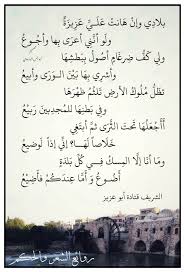 بلادي وإن هانت علي عزيزة
ولو أنني أعرى بها وأجوع
ولي كف ضرغام أصول ببطشها
وأشري بها بين الورى وأبيع
تظل ملوك الأرض تلثم ظهرها
وفي بطنها للمجدبين ربيع
أأجعلها تحت الثرى ثم أبتغي
خلاصا لها؟ إني إذا لوضيع
وما أنا إلا المسك في كل بلدة
أضوع وأما عندكم فأضيع
الشريف قتادة أبو عزيز
روائع الشعر والحكم